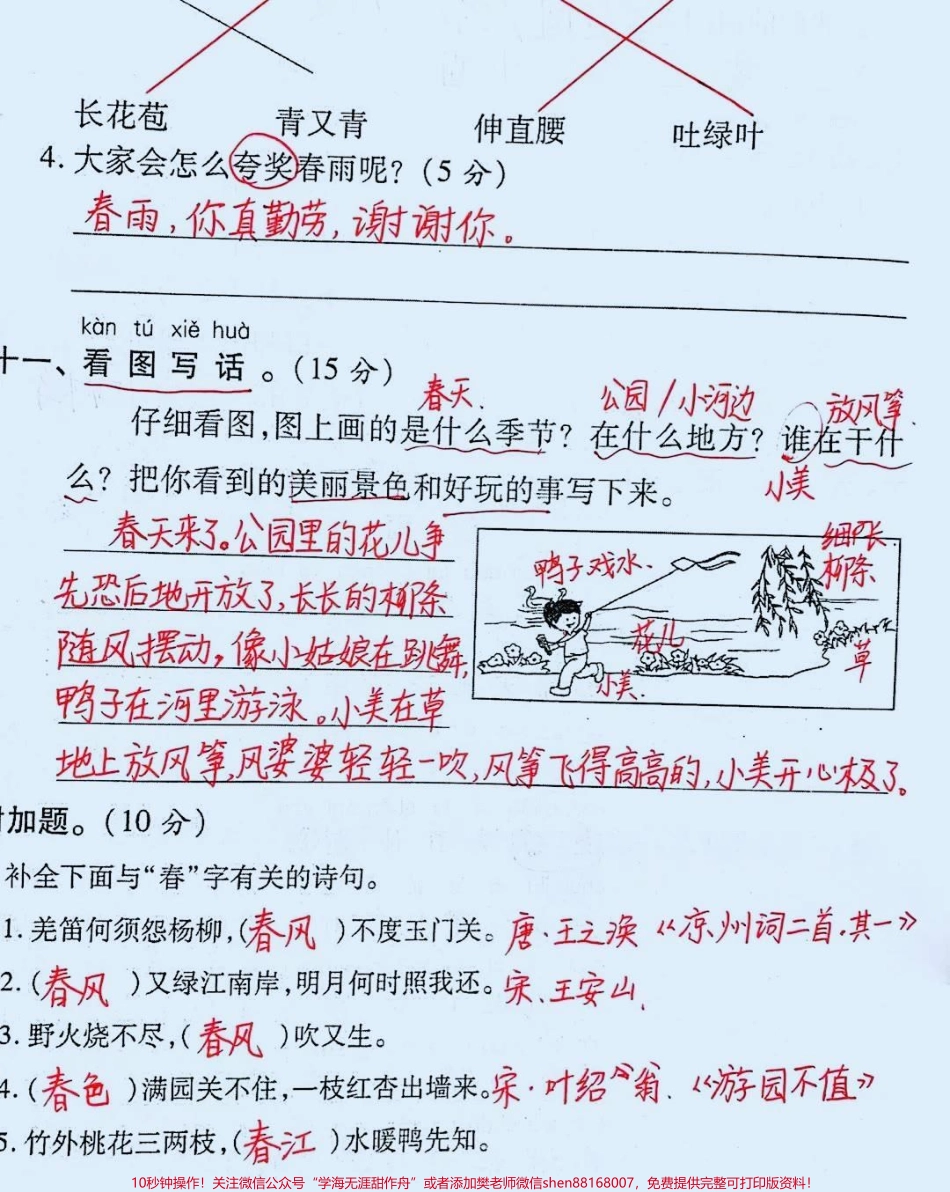 长花苞 青又青 伸直腰 吐绿叶
4. 大家会怎么夸奖春雨呢？(5 分)
春雨，你真勤劳，谢谢你。
kàn tú xiě huà
十一、看图写话。(15 分)
春天. 公园/小河边 放风筝.
仔细看图,图上画的是什么季节？在什么地方？谁在干什
小美
么？把你看到的美丽景色和好玩的事写下来。
春天来了。公园里的花儿争
先恐后地开放了,长长的柳条
随风摆动，像小姑娘在跳舞,
鸭子在河里游泳。小美在草
地上放风筝,风婆婆轻轻一吹,风筝飞得高高的,小美开心极了。
鸭子戏水.
细长
柳条
花儿
草
小美.
附加题。(10 分)
补全下面与“春”字有关的诗句。
1. 羌笛何须怨杨柳,(春风)不度玉门关。唐、王之涣《凉州词二首·其一》
2. (春风)又绿江南岸,明月何时照我还。宋、王安山、
3. 野火烧不尽,(春风)吹又生。
4. (春色)满园关不住,一枝红杏出墙来。宋·叶绍翁.《游园不值》
5. 竹外桃花三两枝,(春江)水暖鸭先知。
10秒钟操作！关注微信公众号“学海无涯甜作舟”或者添加樊老师微信shen88168007，免费提供完整可打印版资料！